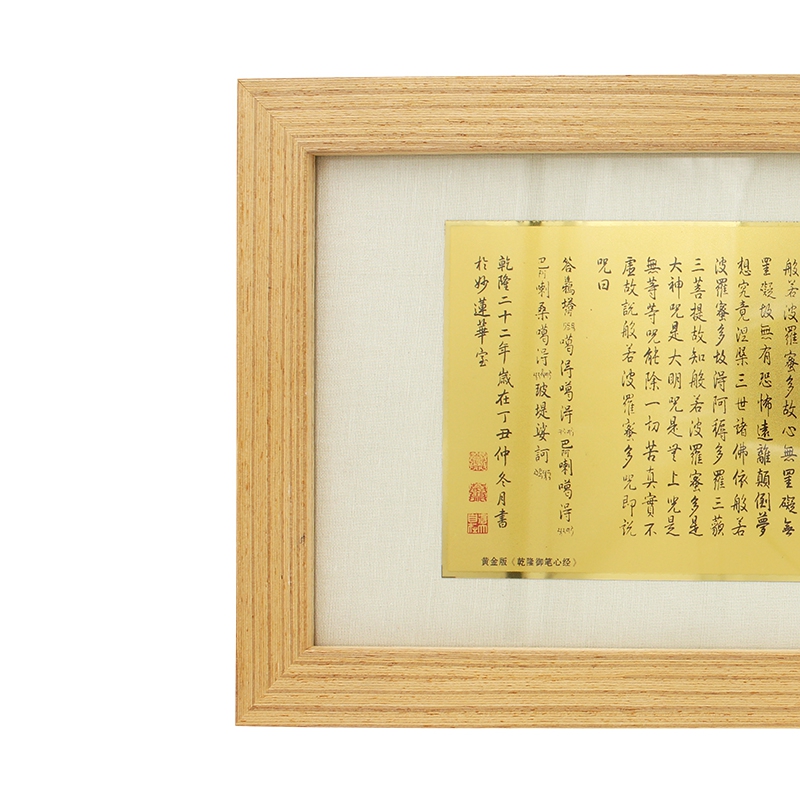 般若波羅蜜多故心無罣礙無
罣礙故無有恐怖遠離顛倒夢
想究竟涅槃三世諸佛依般若
波羅蜜多故淂阿耨多羅三藐
三菩提故知般若波羅蜜多是
大神咒是大明咒是無上咒是
無等等咒能除一切苦真實不
虛故說般若波羅蜜多咒即說
咒曰
答塔噶淂噶淂巴喇噶淂
巴喇桑噶淂玻堤娑訶
乾隆二十二年歲在丁丑仲冬月書
扵妙蓮華室
黄金版《乾隆御笔心经》